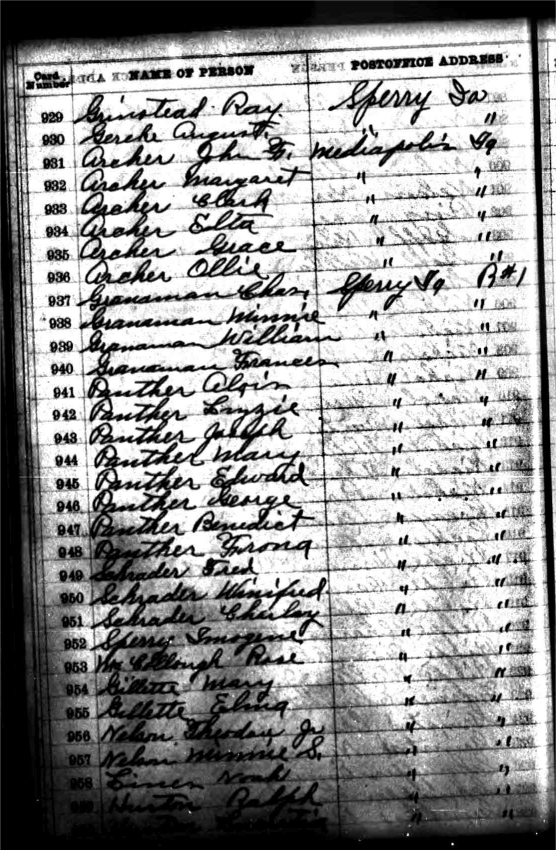 Card Number NAME OF PERSON POSTOFFICE ADDRESS
929 Grinstead Ray Sperry Ia
930 Gerche August " "
931 Archer John F. Mediapolis Ia
932 Archer Margaret " "
933 Archer Clark " "
934 Archer Elta " "
935 Archer Grace " "
936 Archer Ollie " "
937 Granaman Chas. Sperry Ia R#1
938 Granaman Minnie " "
939 Granaman William " "
940 Granaman Frances " "
941 Panther Alvin " "
942 Panther Lizzie " "
943 Panther Joseph " "
944 Panther Mary " "
945 Panther Edward " "
946 Panther George " "
947 Panther Benedict " "
948 Panther " "
949 Schrader Fred " "
950 Schrader Winifred " "
951 Schrader Charley " "
952 Sperry Imogene " "
953 Rose " "
954 Gillette Mary " "
955 Gillette Elma " "
956 Nelson Theodor Jr " "
957 Nelson Minnie S. " "
958 Noah " "
959 Ralph " "
" "